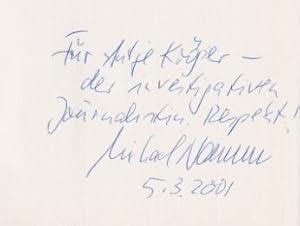 Für Antje Krüger –
der investigativen
Journalistin. Respekt!
Michael Naumann
5.3.2001